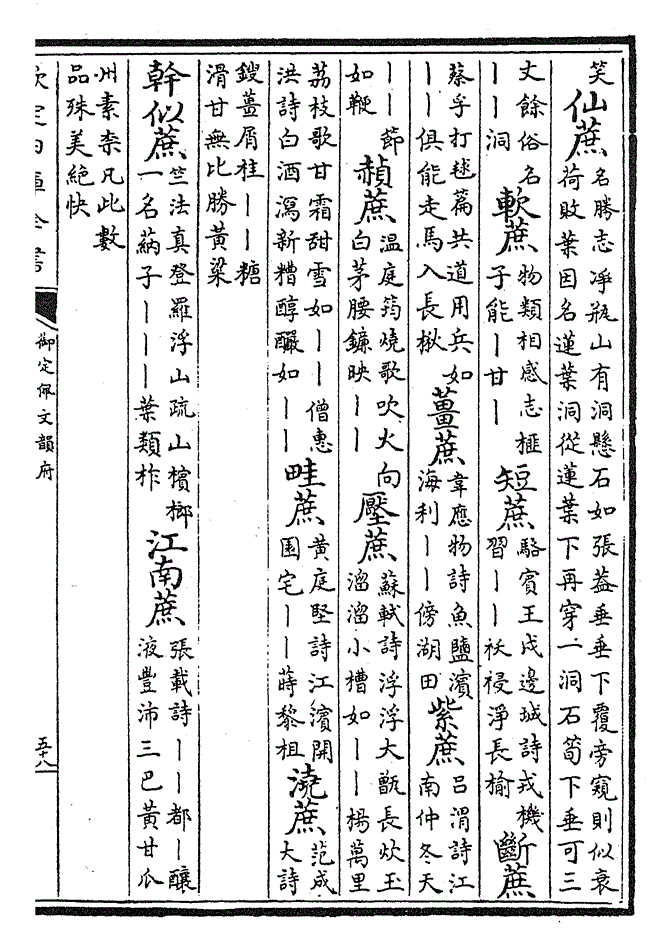 笑仙蔗名勝志凈瓶山有洞懸石如張葢垂垂下覆旁窺則似衰荷敗葉因名蓮葉洞從蓮葉下再穿一洞石筍下垂可三
丈餘俗名——洞軟蔗物類相感志榧子能—甘—短蔗駱賓王戍邊城詩戎機習——祅祲淨長榆斷蔗
蔡孚打毬篇共道用兵如——俱能走馬入長楸薑蔗韋應物詩魚鹽濱海利——傍湖田紫蔗呂渭詩江南仲冬天
——節如鞭赬蔗溫庭筠燒歌吹火向白茅腰鐮映——壓蔗蘇軾詩浮浮大甑長炊玉溜溜小槽如——楊萬里
荔枝歌甘霜甜雪如——僧惠洪詩白酒瀉新糟醇釅如——畦蔗黃庭堅詩江濱開園宅——蒔黎柤澆蔗范成大詩
鎪薑屑桂——糖滑甘無比勝黃粱
幹似蔗竺法真登羅浮山疏山檳榔一名蒳子———葉類柞江南蔗張載詩——都—釀液豐沛三巴黃甘瓜
州素柰凡此數品殊美絕快
欽定四庫全書
御定佩文韻府
五十八